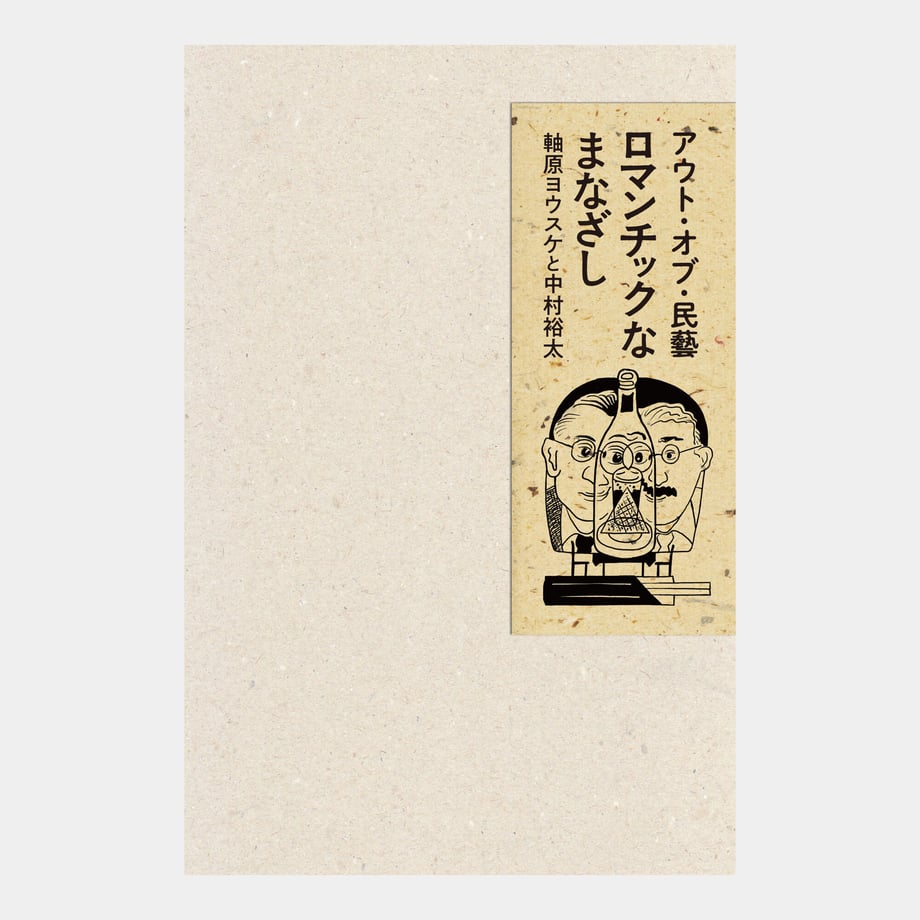 アウト・オブ・民藝
ロマンチックな
まなざし
軸原ヨウスケと中村裕太